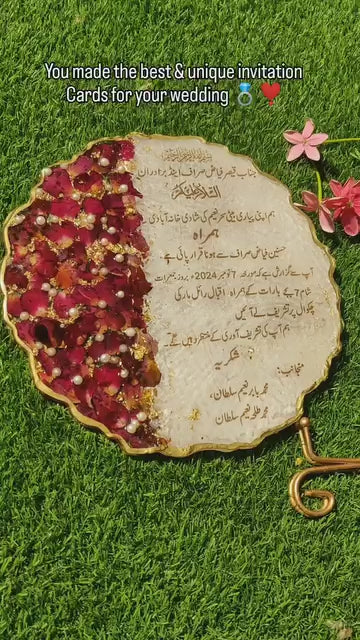 You made the best & unique invitation
Cards for your wedding 💍❣️
جناب قیصر فیاض صراف اینڈ برادران
السلام علیکم
ہم اپنی پیاری بیٹی سحر نعیم کی شادی خانہ آبادی
ہمراہ
حسنین فیاض صراف سے ہونا قرار پائی ہے
آپ سے گزارش ہے کہ مورخہ 7 نومبر 2024ء بروز جمعرات
شام 7 بجے بارات کے ہمراہ اقبال رائل مارکی
چکوال پر تشریف لے آئیں
ہم آپ کی تشریف آوری کے منتظر رہیں گے۔
شکریہ
منجانب:
محمد بابر نعیم سلطان،
محمد طلحہ نعیم سلطان